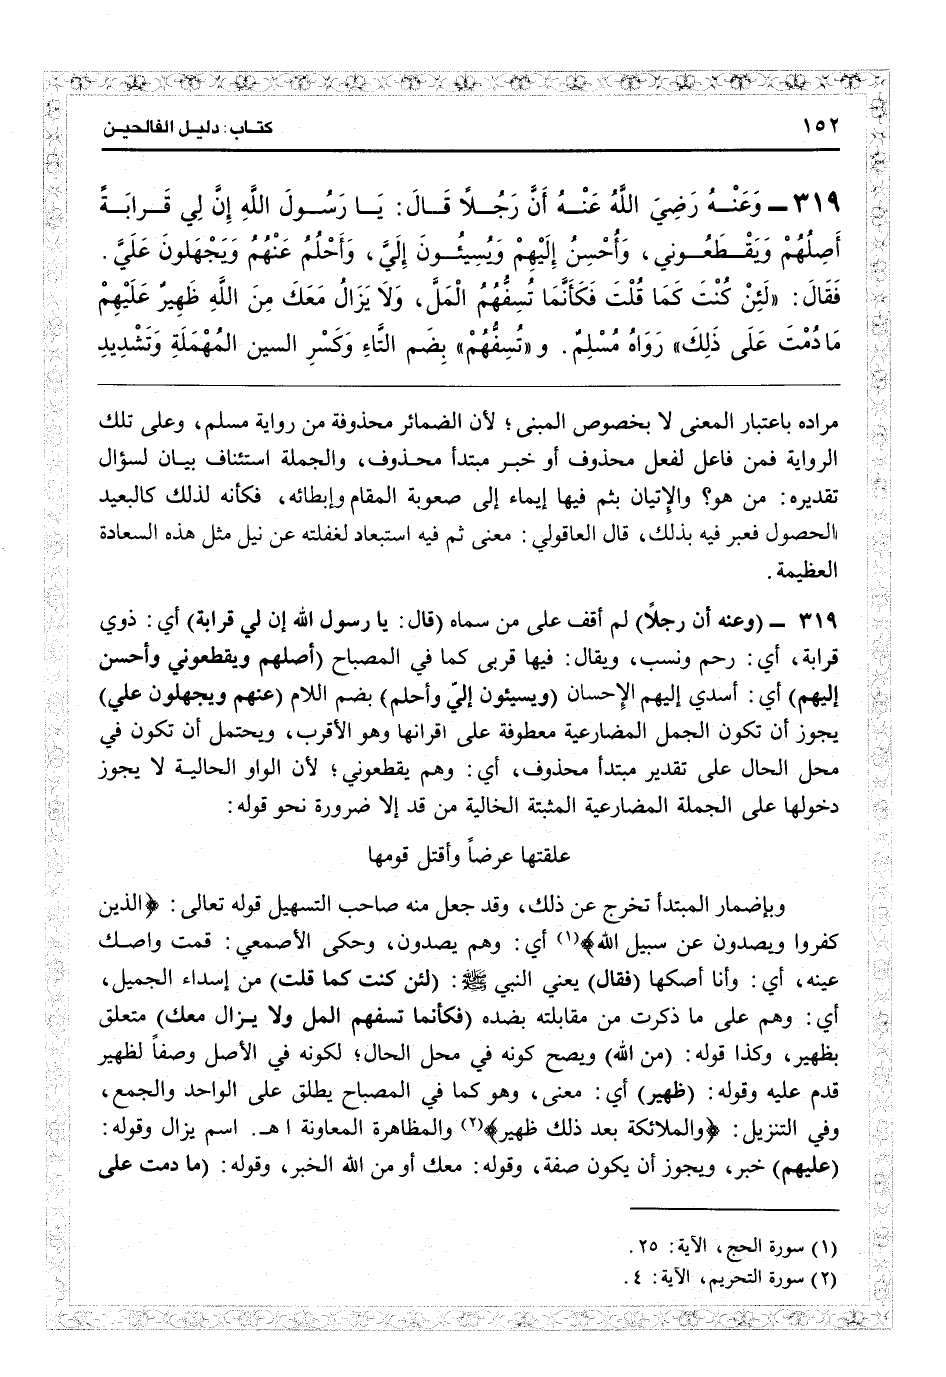 ١٥٢
كتاب: دليل الفالحين
٣١٩ ـ وَعَنْـهُ رَضِيَ اللَّهُ عَنْـهُ أَنَّ رَجُـلاً قَـالَ: يَـا رَسُـولَ اللَّهِ إِنَّ لِي قَـرابَـةً
أَصِلُهُمْ وَيَقْـطَعُـوني، وَأُحْسِنُ إِلَيْهِمْ وَيُسِيئُـونَ إِلَيَّ، وَأَحْلُمُ عَنْهُمْ وَيَجْهَلونَ عَلَيَّ.
فَقَالَ: «لَئِنْ كُنْتَ كَمَا قُلْتَ فَكَأَنَّمَا تُسِفُّهُمُ الْمَلَّ، وَلَا يَزَالُ مَعَكَ مِنَ اللَّهِ ظَهِيرٌ عَلَيْهِمْ
مَا دُمْتَ عَلَى ذَلِكَ» رَوَاهُ مُسْلِمٌ. و «تُسِفُّهُمْ» بِضَم التَّاءِ وَكَسْرِ السين المُهْمَلَةِ وَتَشْدِيدِ
مراده باعتبار المعنى لا بخصوص المبنى؛ لأن الضمائر محذوفة من رواية مسلم، وعلى تلك
الرواية فمن فاعل لفعل محذوف أو خبر مبتدأ محـذوف، والجملة استئناف بيـان لسؤال
تقديره: من هو؟ والإتيان بثم فيها إيماء إلى صعوبة المقام وإبطائه، فكأنه لذلك كالبعيد
الحصول فعبر فيه بذلك، قال العاقولي: معنى ثم فيه استبعاد لغفلته عن نيل مثل هذه السعادة
العظيمة.
٣١٩ ـ (وعنه أن رجلاً) لم أقف على من سماه (قال: يا رسول الله إن لي قرابة) أي: ذوي
قرابة، أي: رحم ونسب، ويقال: فيها قربى كما في المصباح (أصلهم ويقطعوني وأحسن
إليهم) أي: أسدي إليهم الإحسان (ويسيئون إليّ وأحلم) بضم اللام (عنهم ويجهلون علي)
يجوز أن تكون الجمل المضارعية معطوفة على اقرانها وهو الأقرب، ويحتمل أن تكون في
محل الحال على تقدير مبتدأ محذوف، أي: وهم يقطعوني؛ لأن الواو الحالية لا يجوز
دخولها على الجملة المضارعية المثبتة الخالية من قد إلا ضرورة نحو قوله:
علقتها عرضاً وأقتل قومها
وبإضمار المبتدأ تخرج عن ذلك، وقد جعل منه صاحب التسهيل قوله تعالى: ﴿الذين
كفروا ويصدون عن سبيل الله﴾(١) أي: وهم يصدون، وحكى الأصمعي: قمت واصـك
عينه، أي: وأنا أصكها (فقال) يعني النبي ﷺ: (لئن كنت كما قلت) من إسداء الجميل،
أي: وهم على ما ذكرت من مقابلته بضده (فكأنما تسفهم المل ولا يـزال معك) متعلق
بظهير، وكذا قوله: (من الله) ويصح كونه في محل الحال؛ لكونه في الأصل وصفاً لظهير
قدم عليه وقوله: (ظهير) أي: معنى، وهو كما في المصباح يطلق على الواحد والجمع،
وفي التنزيل: ﴿والملائكة بعد ذلك ظهير﴾(٢) والمظاهرة المعاونة ا هـ. اسم يزال وقوله:
(عليهم) خبر، ويجوز أن يكون صفة، وقوله: معك أو من الله الخبر، وقوله: (ما دمت على
(١) سورة الحج، الآية: ٢٥.
(٢) سورة التحريم، الآية: ٤.